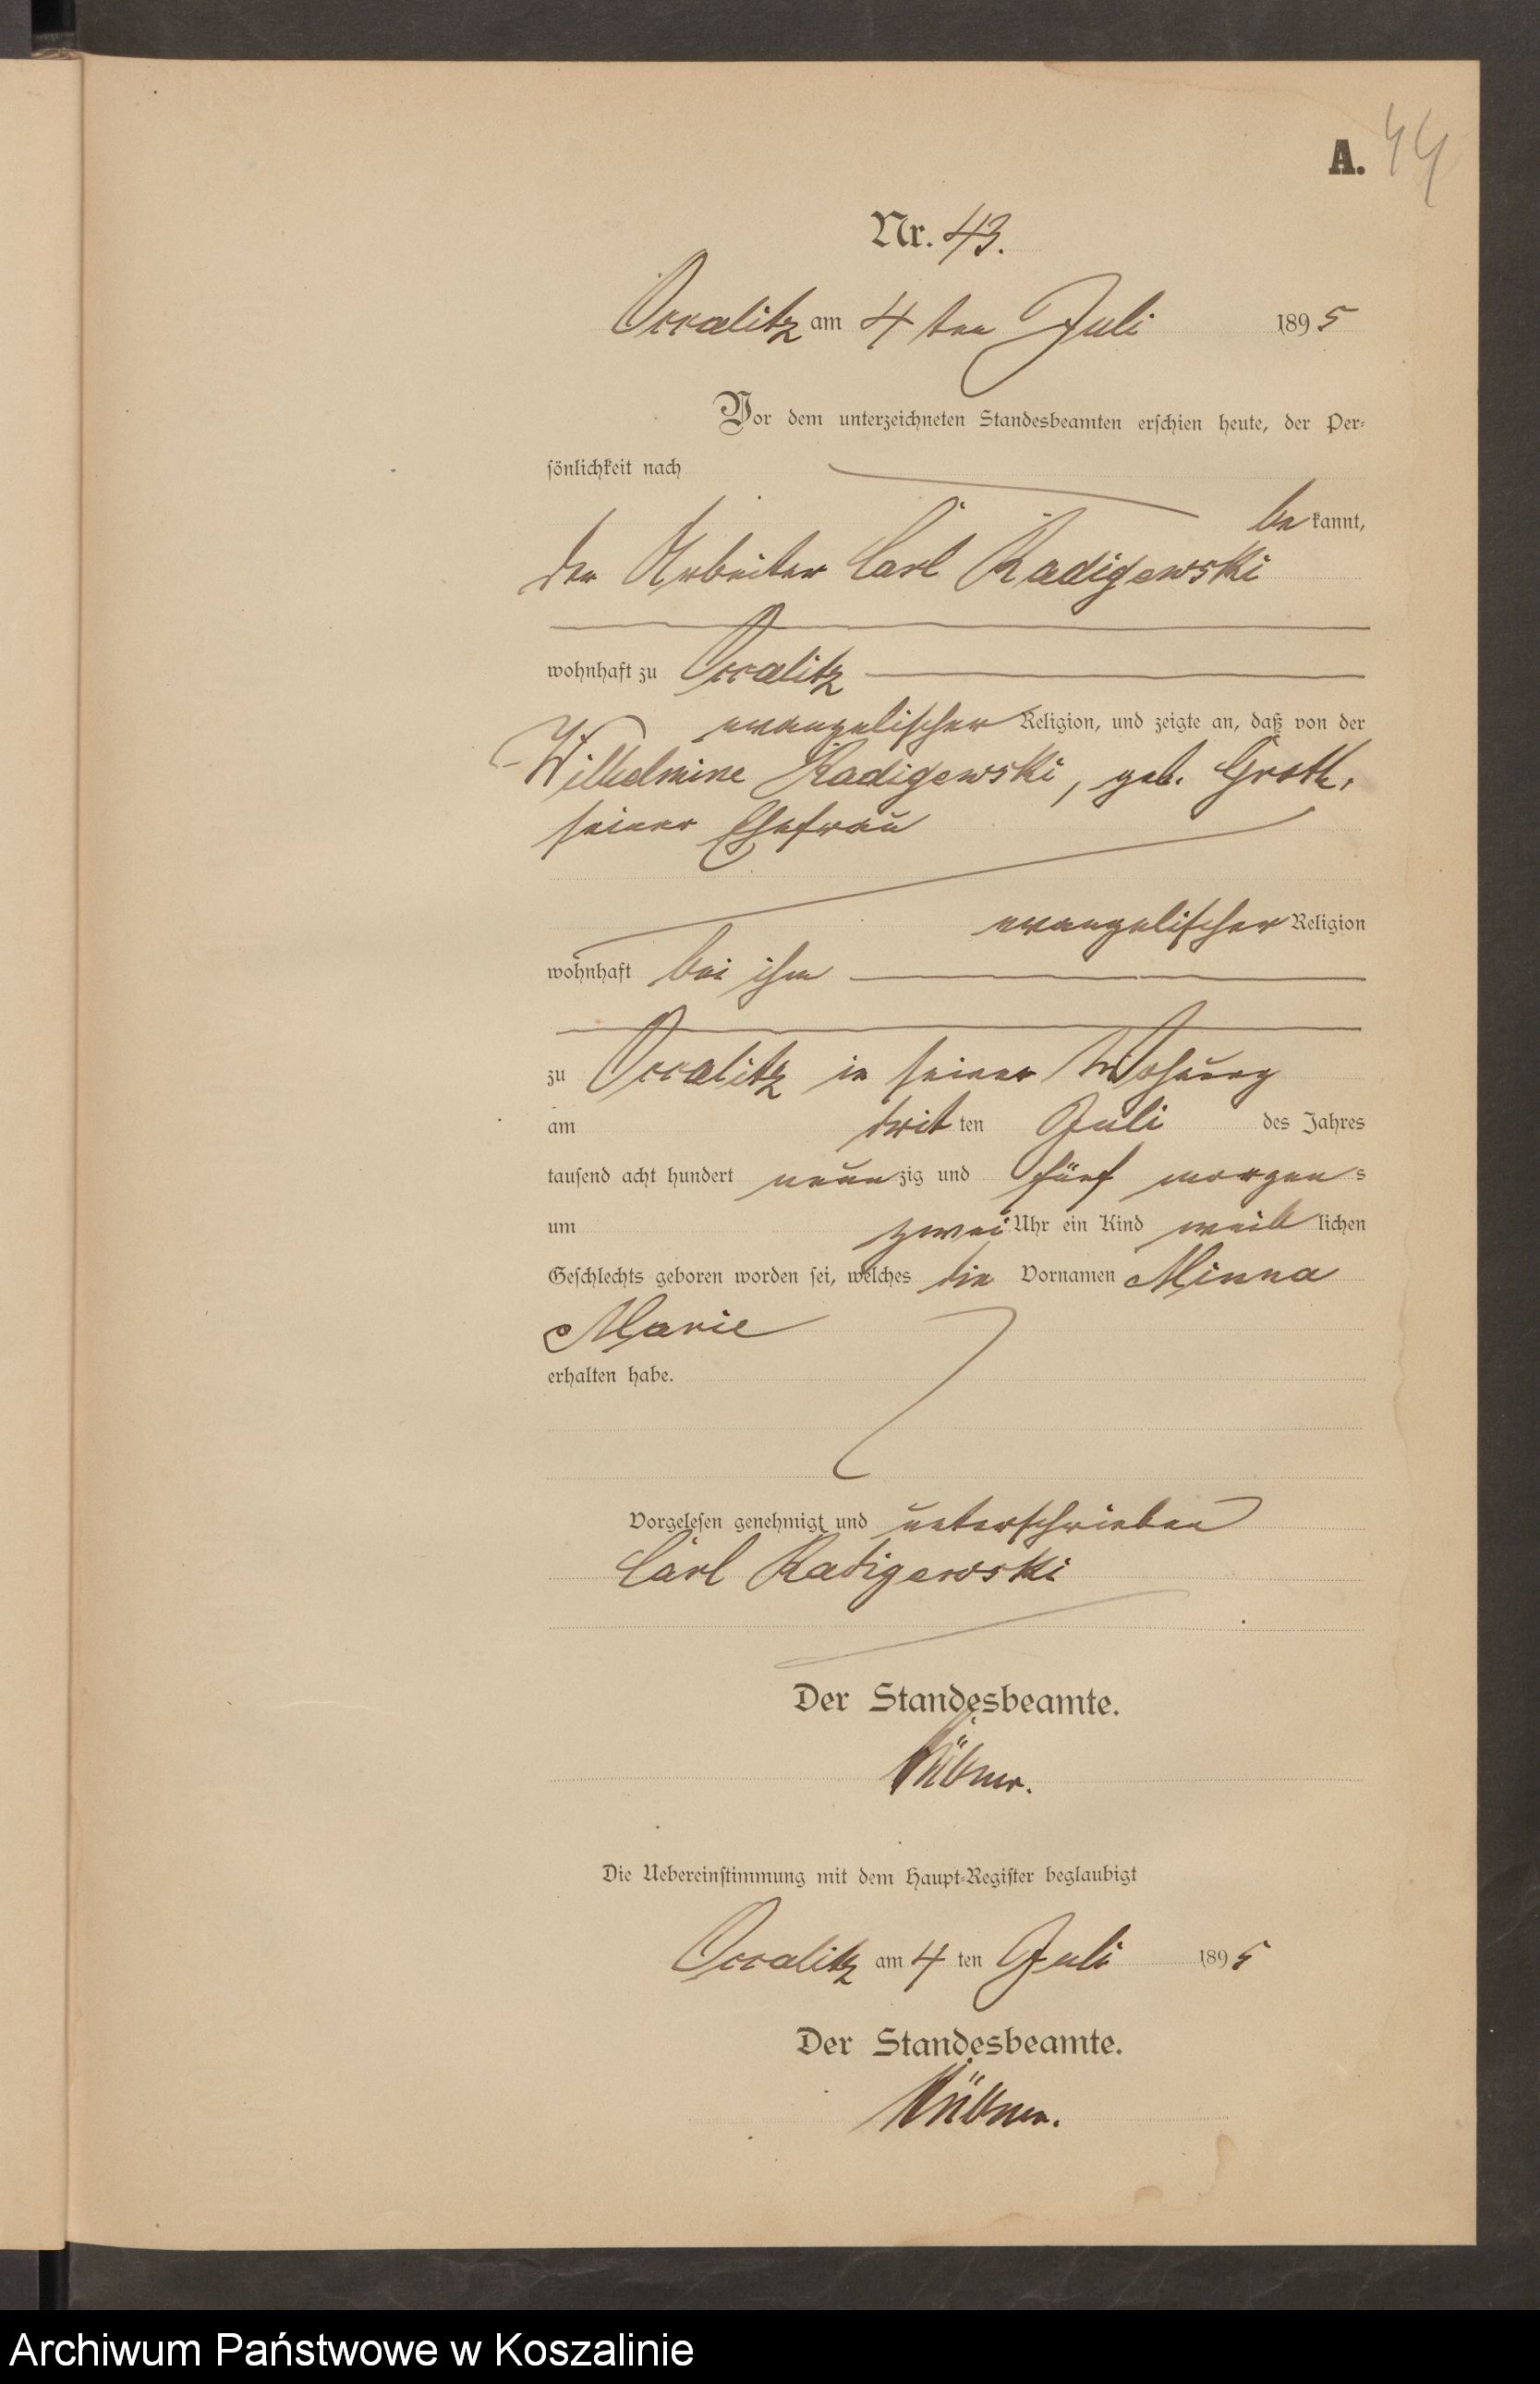 A. 44
Nr. 43.
Occalitz am 4 ten Juli 1895
Vor dem unterzeichneten Standesbeamten erschien heute, der Per-
sönlichkeit nach
be kannt,
der Arbeiter Carl Radigewski
wohnhaft zu Occalitz
evangelischer Religion, und zeigte an, daß von der
Wilhelmine Radigewski, geb. Groth,
seiner Ehefrau
evangelischer Religion
wohnhaft bei ihm
zu Occalitz in seiner Wohnung
am dritten Juli des Jahres
tausend acht hundert neunzig und fünf morgens
um zwei Uhr ein Kind weiblichen
Geschlechts geboren worden sei, welches die Vornamen Minna
Marie
erhalten habe.
Vorgelesen genehmigt und unterschrieben
Carl Radigewski
Der Standesbeamte.
Die Uebereinstimmung mit dem Haupt-Register beglaubigt
Occalitz am 4 ten Juli 1895
Der Standesbeamte.
Archiwum Państwowe w Koszalinie